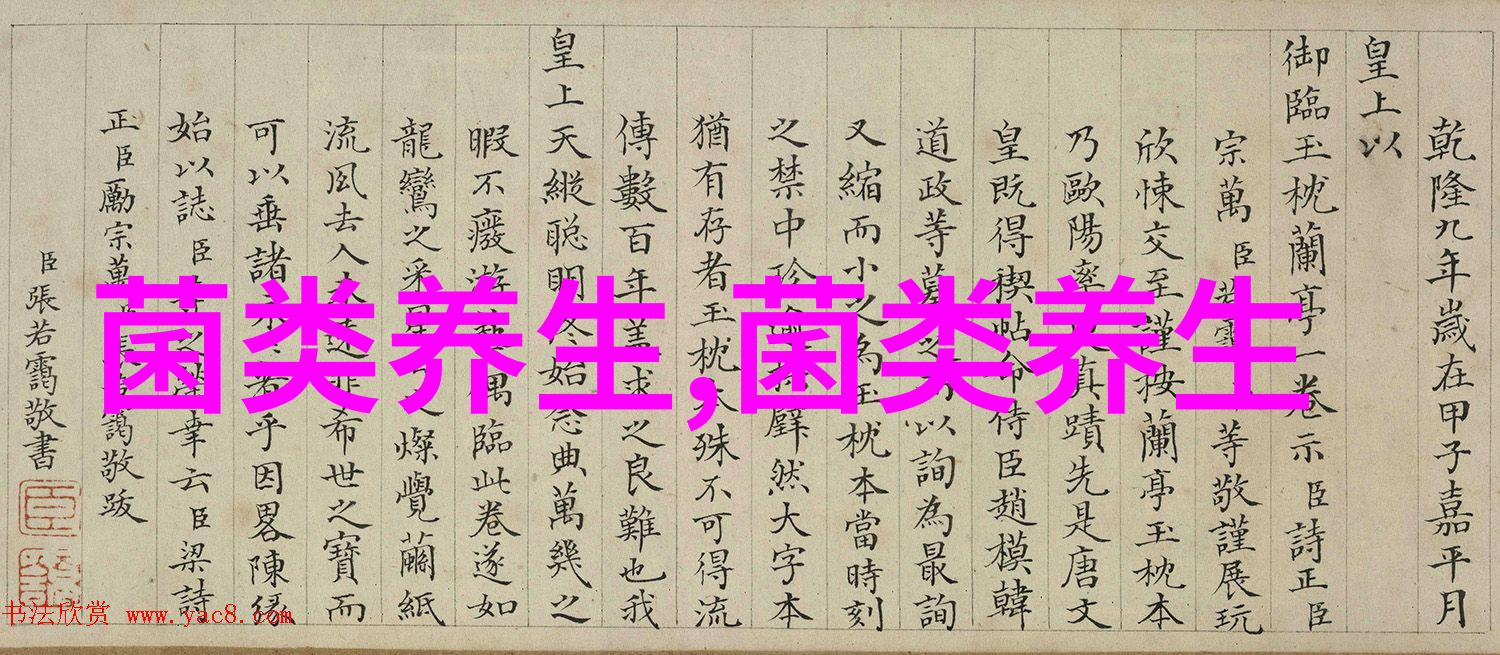 乾隆九年歲在甲子嘉平月
皇上以
御臨玉枕蘭亭一卷示臣詩正臣
宗萬臣若靄等敬謹展玩
欣悚交至謹按蘭亭玉枕本
乃歐陽率真蹟先是唐文
皇既得禊帖命侍臣趙模韓
道政等摹之以詢為最詢
又縮而小之為玉枕本當時刻
之禁中珍璧然大字本
猶有存者玉枕本殊不可得流
傳數百年蓋求之良難也我
皇上天縱聰明終始念典萬幾之
暇不癈游藝偶臨此卷遂如
龍鸞之采星之燦覺繭紙
流風去人未遠希世之寶而
可以垂諸乎因畧陳緣
始以誌臣之榮幸云臣梁詩
正臣勵宗萬臣張若靄敬跋
臣張若靄敬書
菌类养生,菌类养生
书法欣赏 www.yac8.com